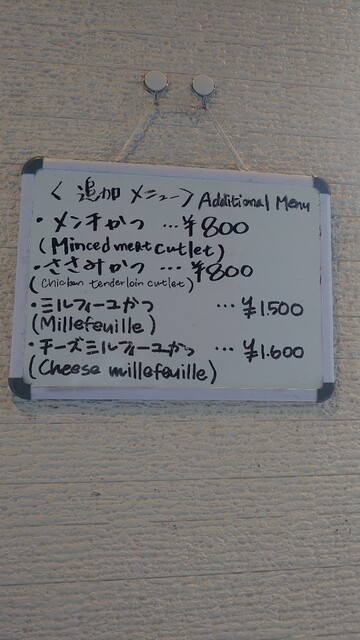 〈追加メニュー〉Additional Menu
・メンチかつ …¥800
(Minced meat cutlet)
・ささみかつ …¥800
(Chicken tenderloin cutlet)
・ミルフィーユかつ …¥1.500
(Millefeuille)
・チーズミルフィーユかつ …¥1.600
(Cheese millefeuille)